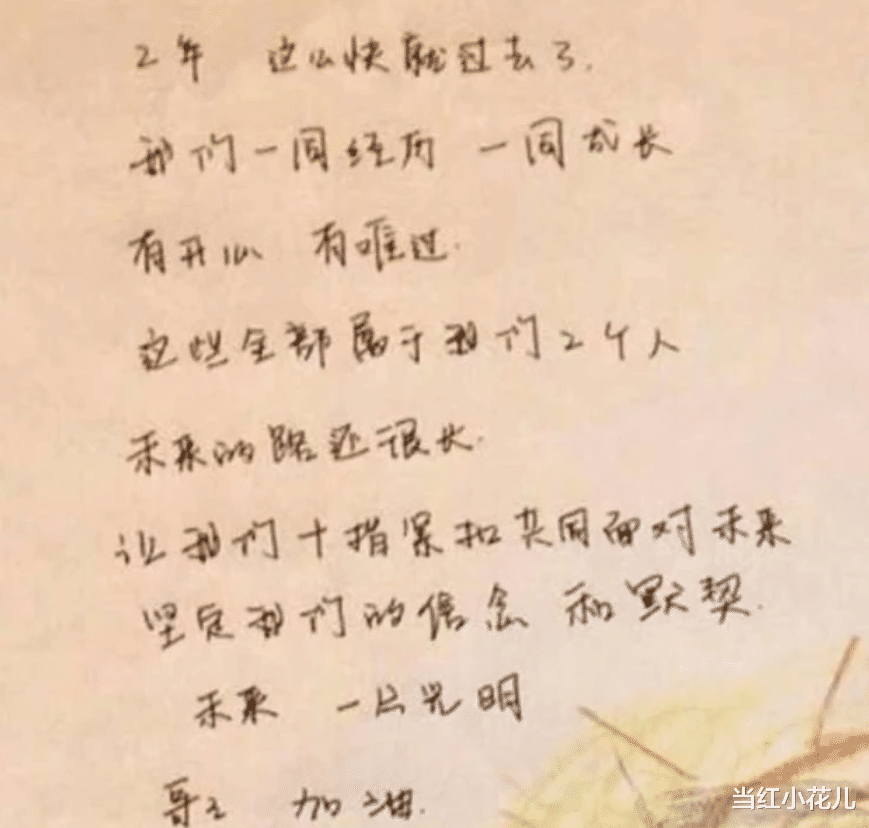 2年 这么快就过去了.
我们一同经历 一同成长
有开心 有难过.
这些全部属于我们2个人
未来的路还很长.
让我们十指紧扣共同面对未来
坚定我们的信念 和默契.
未来 一片光明
加油.
当红小花儿